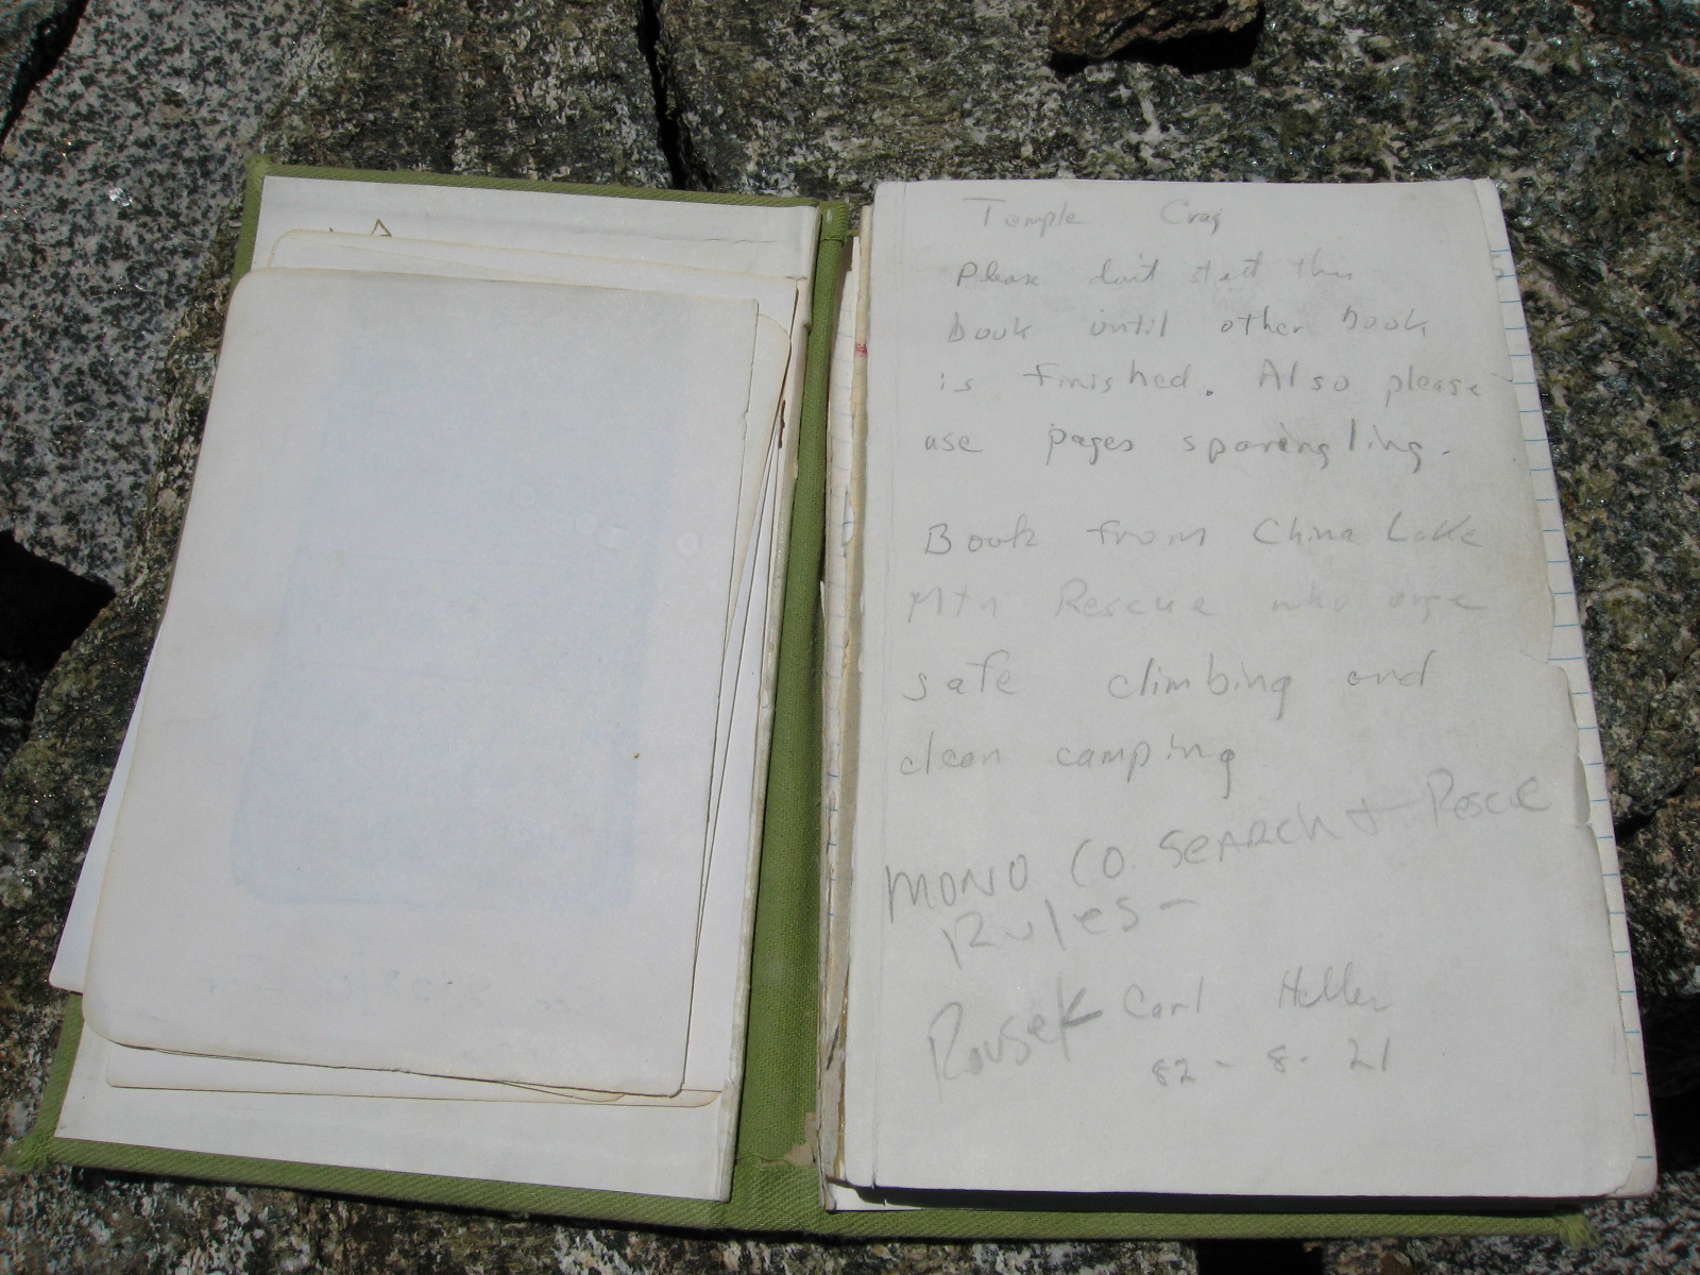 Temple Crag
Please don't start this
book until other book
is finished. Also please
use pages sparingling.
Book from China Lake
Mtn Rescue who urge
safe climbing and
clean camping
MONO CO. SEARCH + Rescue
Rules -
Carl Heller
82 - 8 - 21